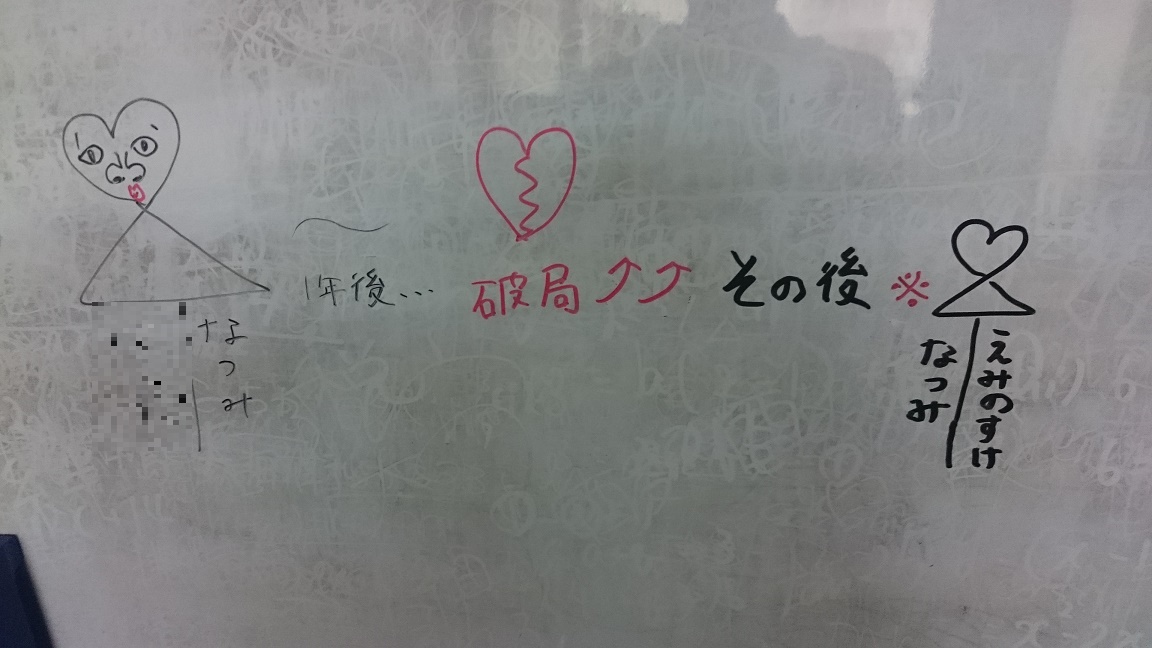 なつみ
1年後...
破局⤴⤴
その後※
なつみ
えみのすけ